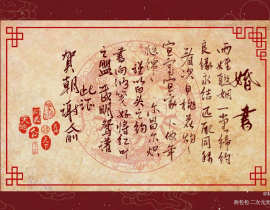 婚書
两姓联姻 一堂缔约
良缘永结 匹配同称
看此日桃花灼灼
宜室宜家 卜他年
瓜瓞绵绵 尔昌尔炽
谨以白头之约
書向鸿笺 好将红叶
之盟 载明鸳谱
此证
賀朝 谢俞